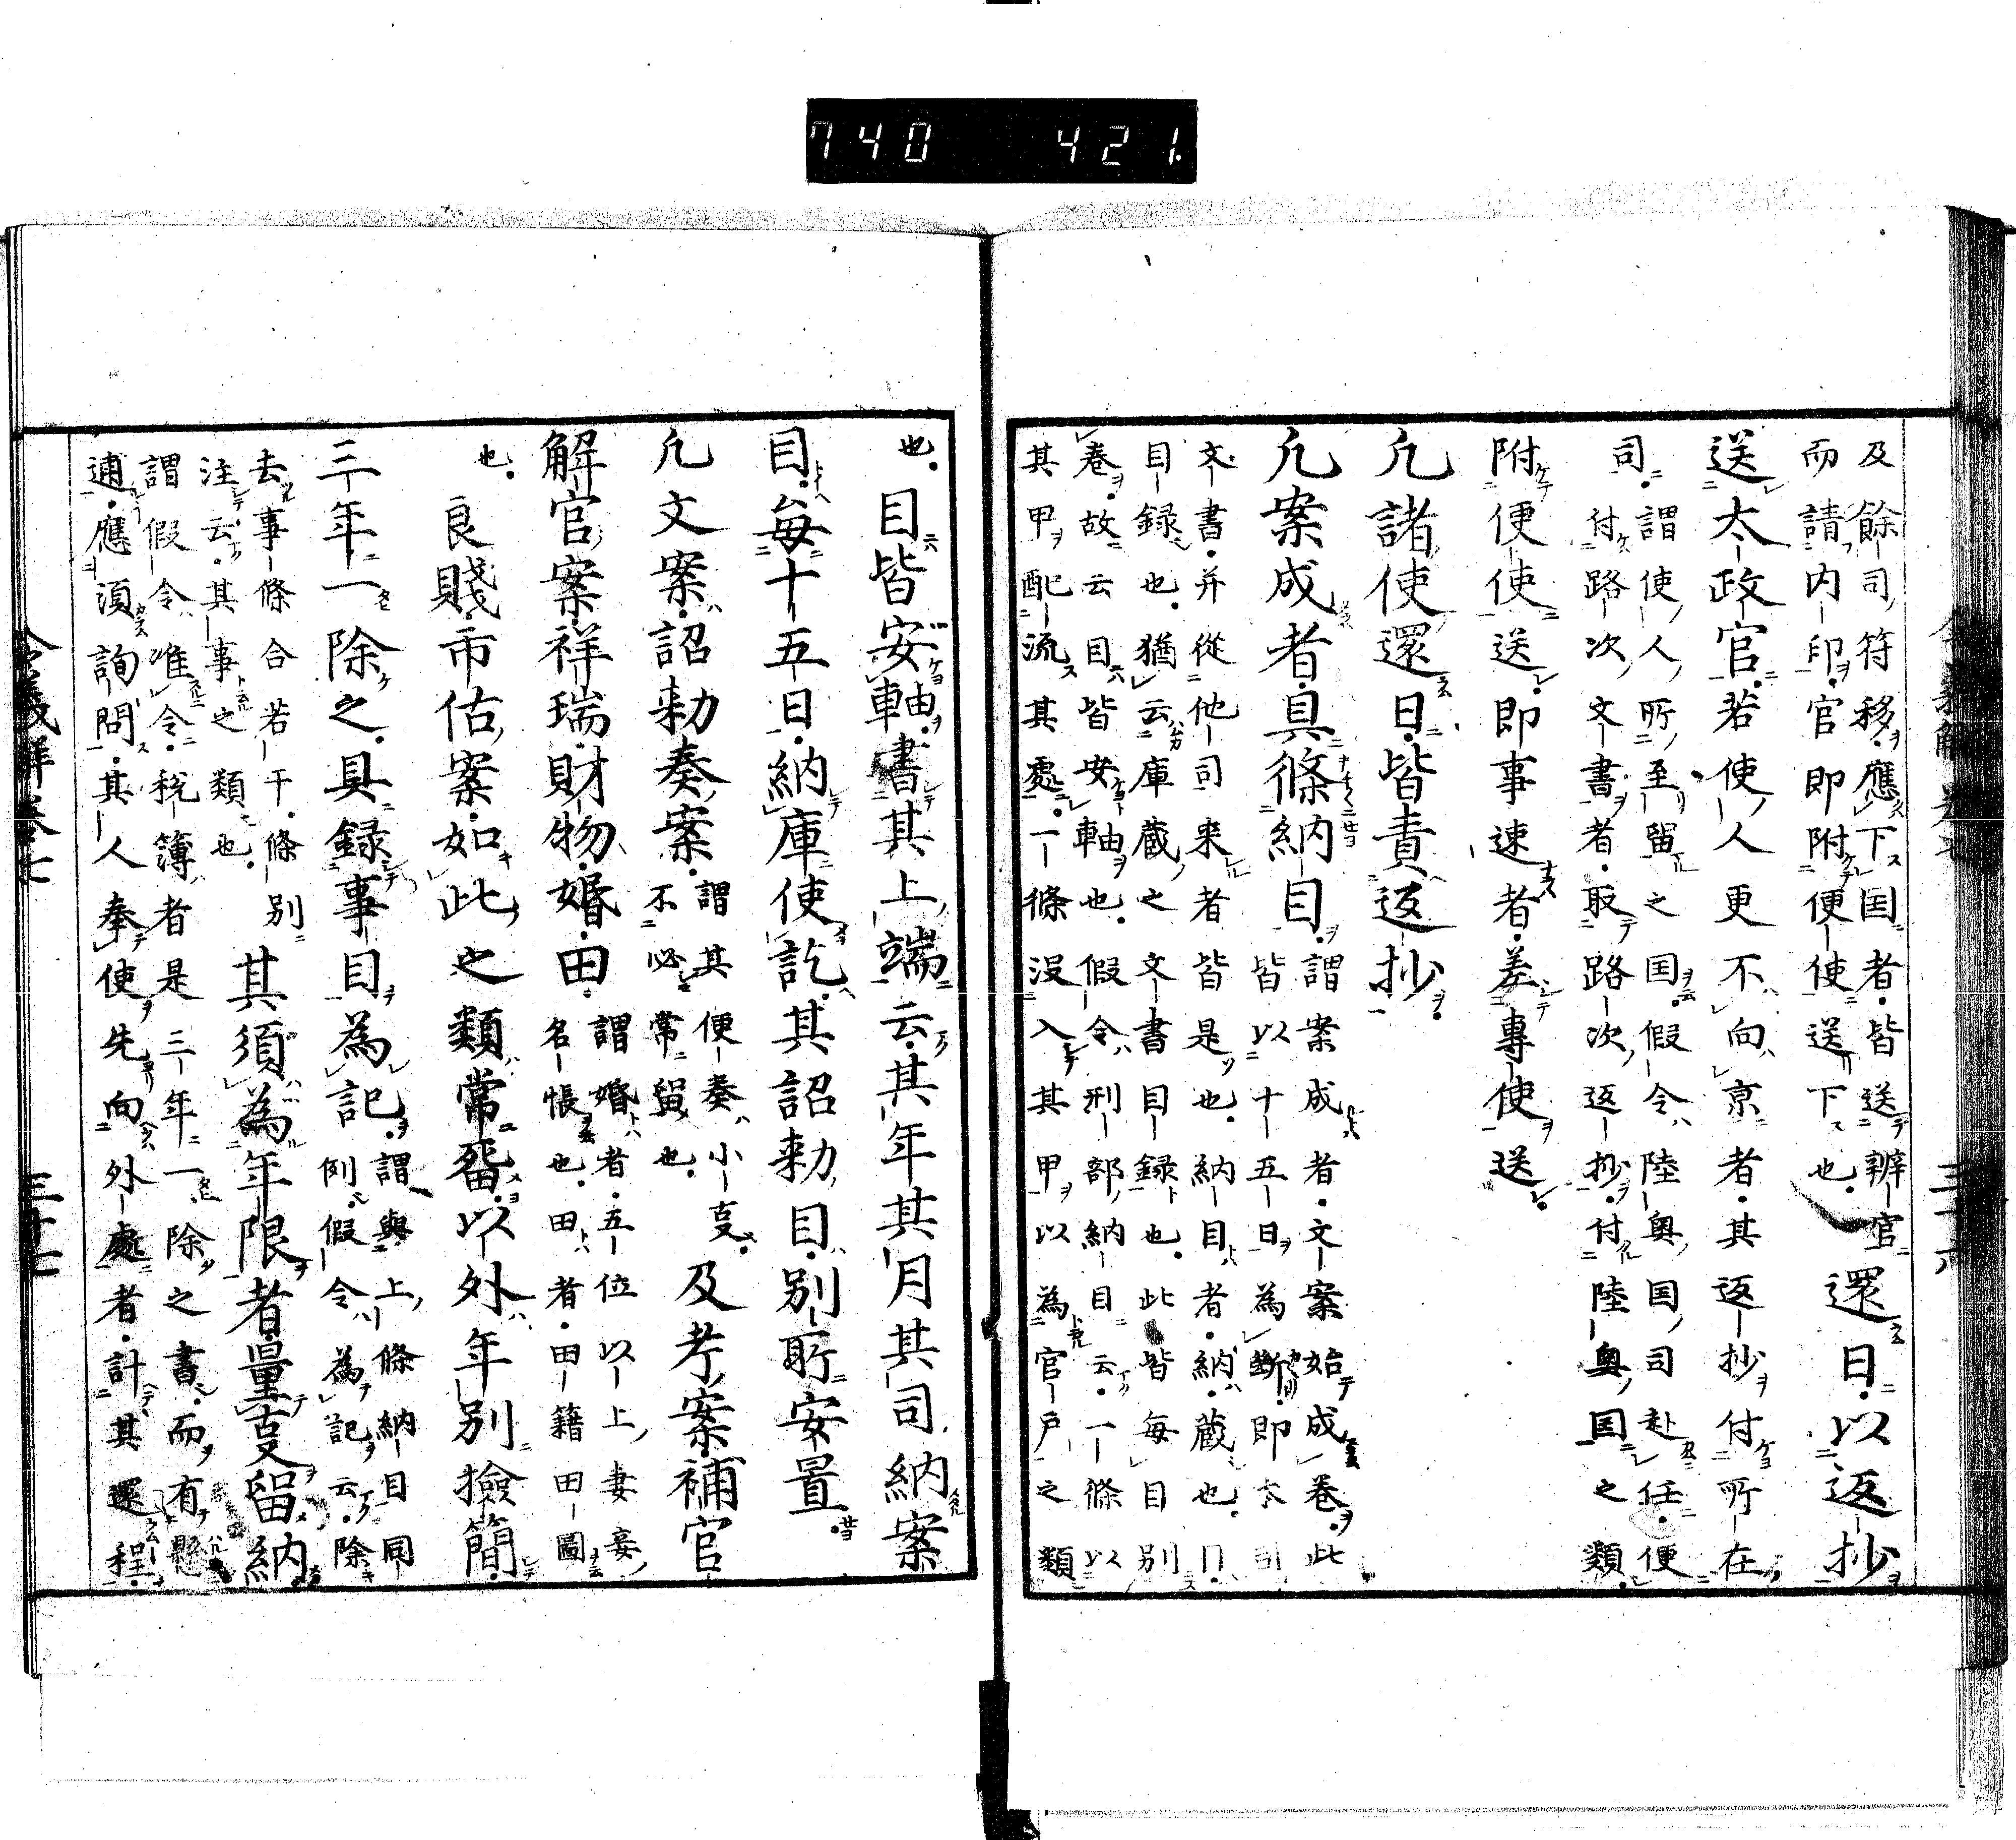 740 421.
及餘司符移應下国者皆送辨官
而請内印官即附便使送下也
還日以返抄
送太政官若使人更不向京者其返抄付所在
司
謂使人所至留之国假令陸奥国司赴任便
付路次文書者取路次返抄付陸奥国之類
附便使送即事速者差專使送
凢諸使還日皆責返抄
凢案成者具條納目
謂案成者文案始成卷此
皆以十五日為断即本司
文書并從他司来者皆是也納目者納蔵也
目録也猶云庫蔵之文書目録也此皆毎目別
卷故云目皆安軸也假令刑部納目云一條以
其甲配流其處一條没入其甲以為官戸之類
三十六
也
目皆安軸書其上端云其年其月其司納案
目毎十五日納庫使訖其詔勅目別所安置
凢文案詔勅奏案
謂其便奏小㕝
不必常留也
及考案補官
解官案祥瑞財物婚田
謂婚者五位以上妻妾
名帳也田者田籍田圖
也
良賤市估案如此之類常留以外年別撿簡
三年一除之具録事目為記
謂與上條納目同
例假令為記云除
去事條合若干條別
注云其事之類也
其須為年限者量㕝留納
謂假令准令税簿者是三年一除之書而有懸
逋應須詢問其人奉使先向外處者計其還程
令義解卷七 三十七